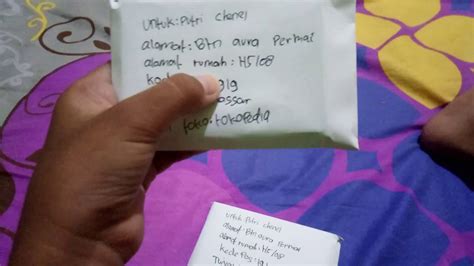 untuk: Putri chanel
alamat: Btn aura Permai
alamat rumah: H5/08
kode
919
assar
toko: tokopedia
untuk: Putri chanel
alamat Btn aura Permai
alamat rumah: H5/08
kode Pos: